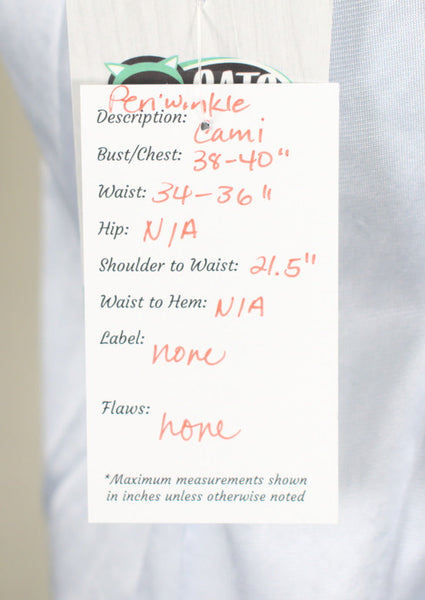 CATS
Periwinkle
Description: Cami
Bust/Chest: 38-40"
Waist: 34-36"
Hip: N/A
Shoulder to Waist: 21.5"
Waist to Hem: N/A
Label: none
Flaws: none
*Maximum measurements shown
in inches unless otherwise noted